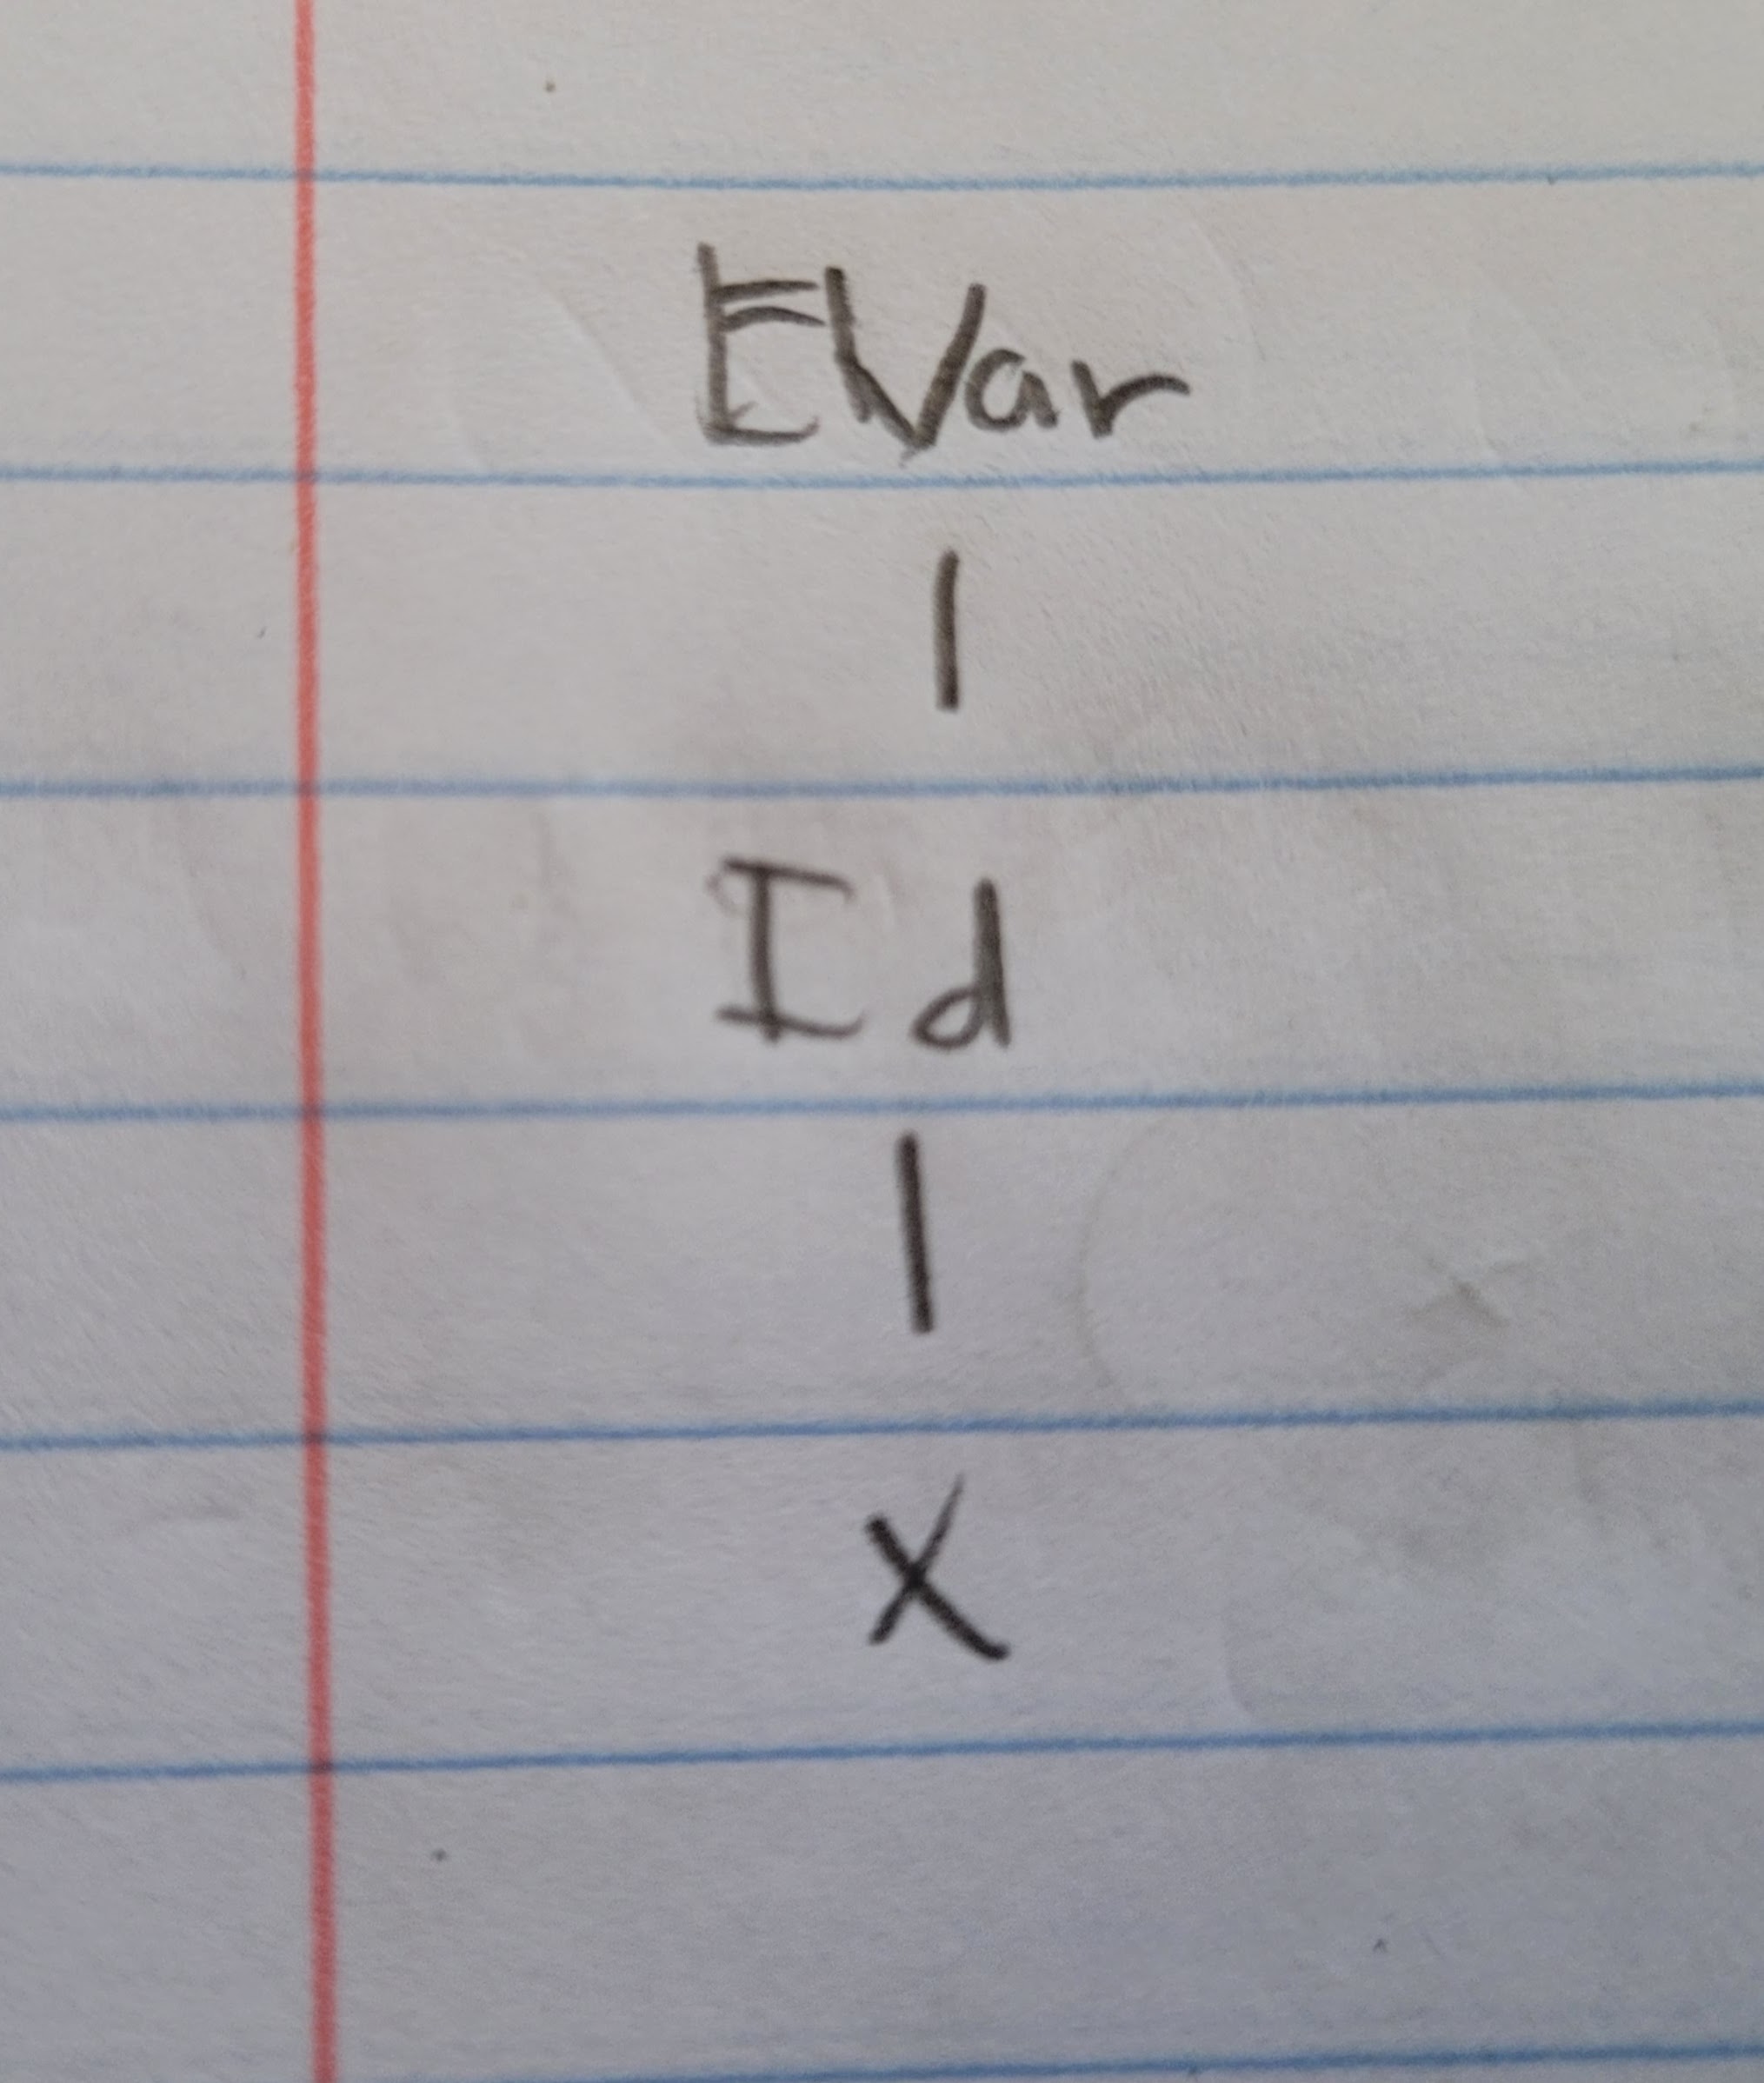 EVar
|
Id
|
x